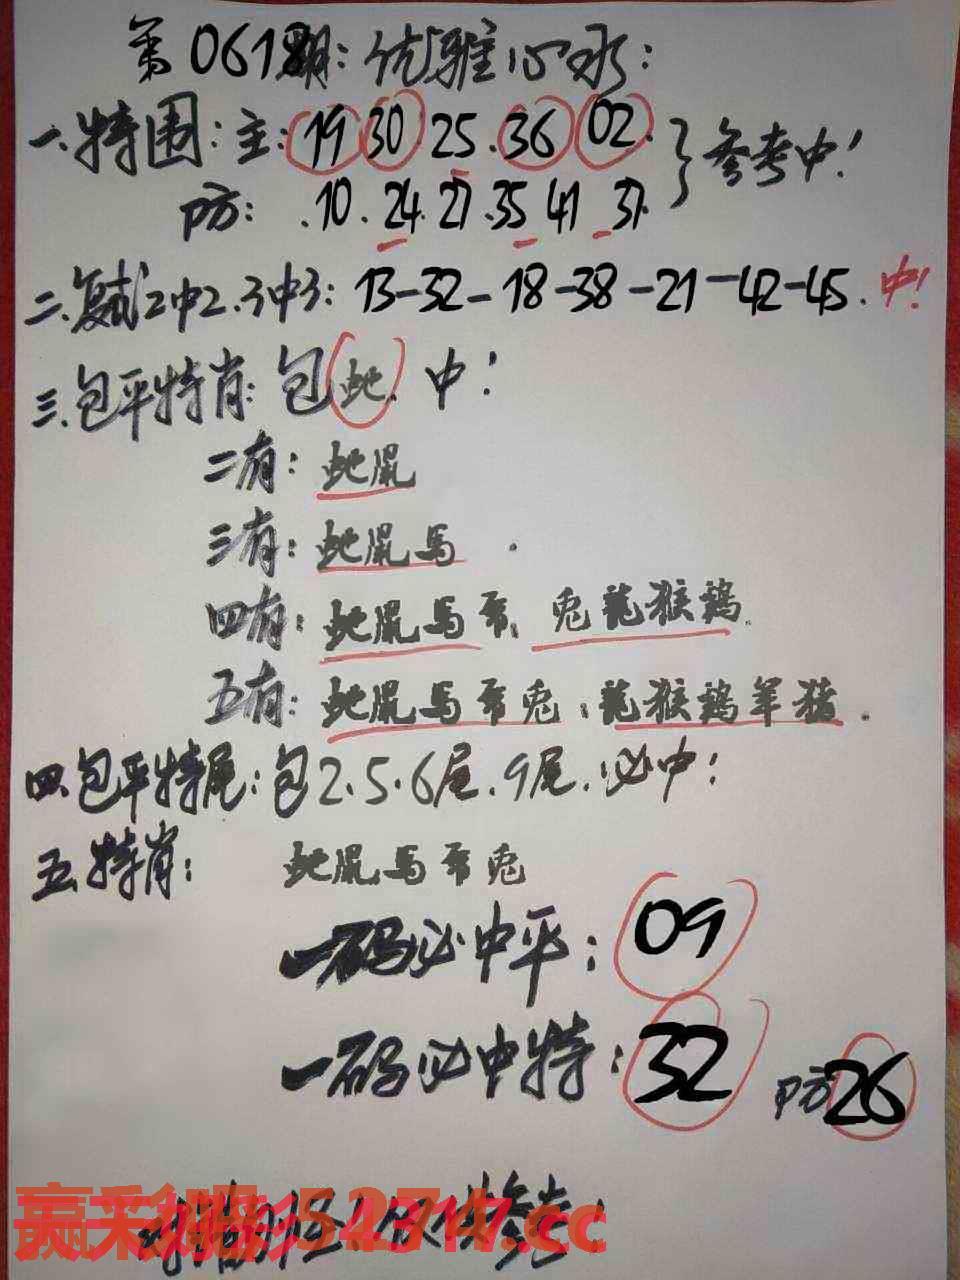 第0618期：优雅心水：
一.特围：主：19 30 25.36 02.}参考中！
防：.10.24.27.35 41 37.
二.复试2中2.3中3：13-32-18-38-21-42-45.中！
三.包平特肖：包蛇.中！
二有：蛇鼠
三有：蛇鼠馬.
四有：蛇鼠馬 兔龍猴鷄.
五有：蛇鼠馬 兔：龍猴鷄羊猪.
四.包平特尾：包2.5.6尾.9尾.必中！
五.特肖：蛇鼠馬 兔
一码必中平：09
一码必中特：32 防26
赢彩吧:52717.cc
参考